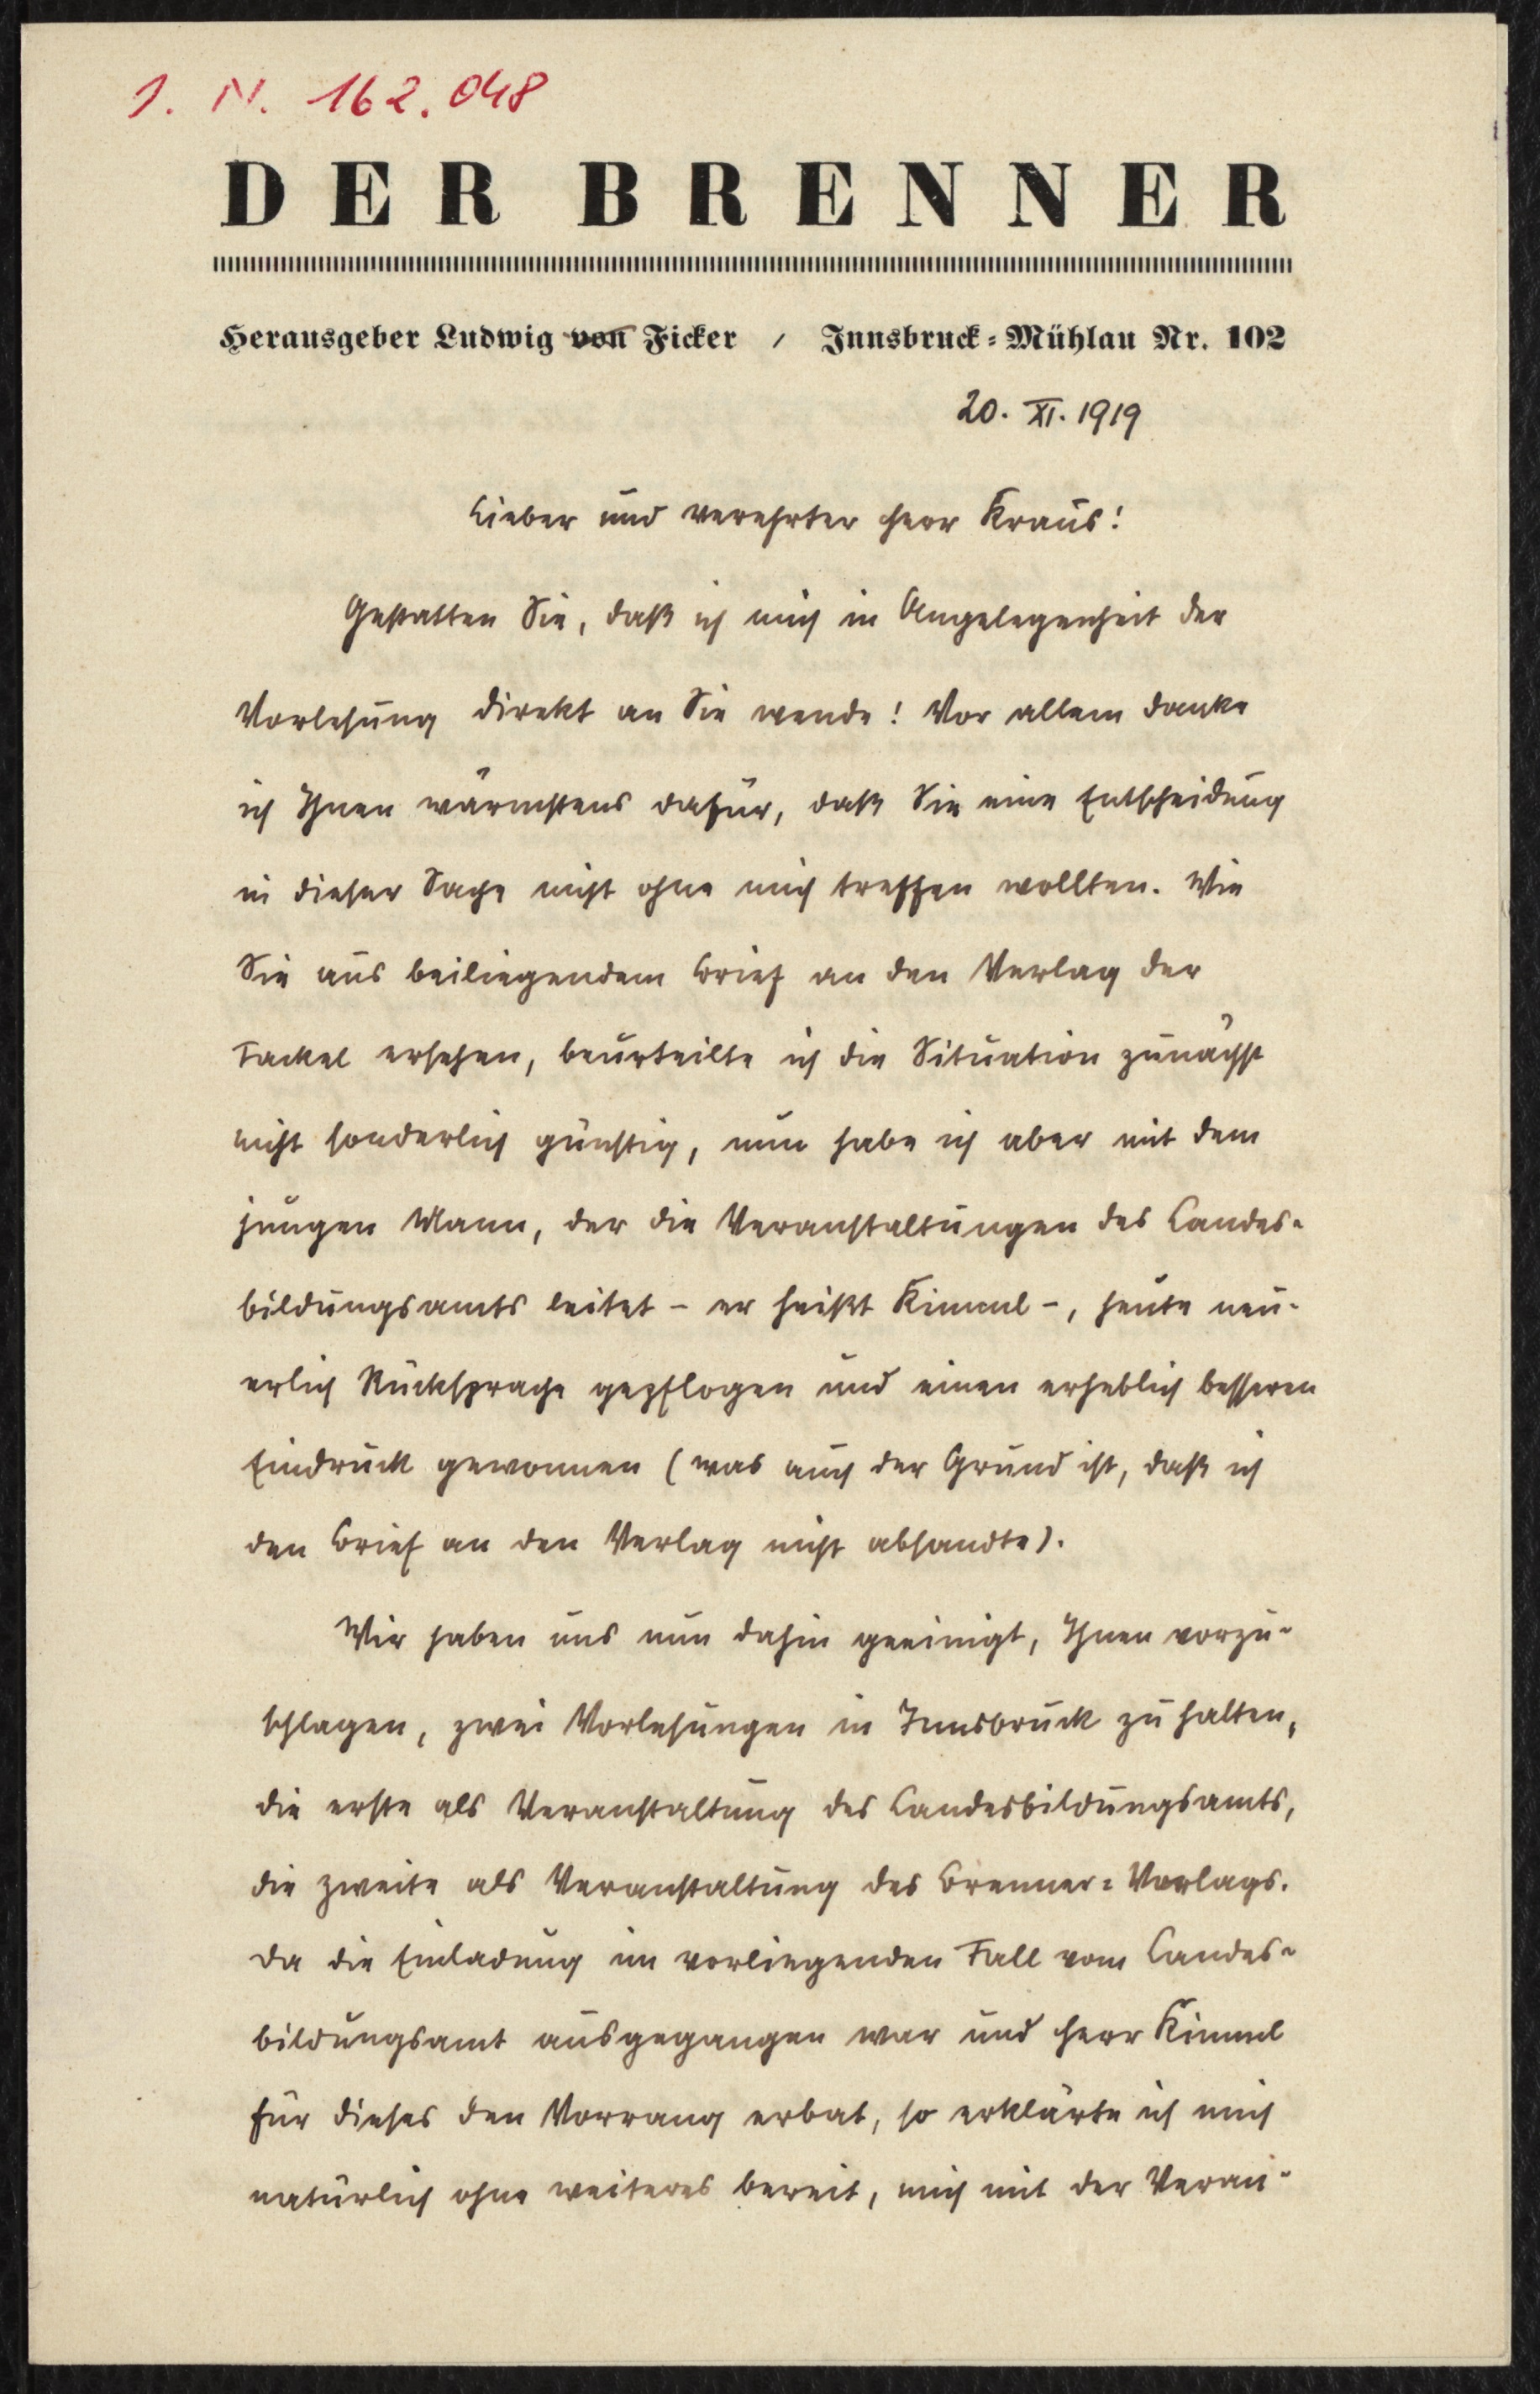 J. N. 162.048
DER BRENNER
Herausgeber Ludwig von Ficker / Innsbruck-Mühlau Nr. 102
20. XI. 1919
Lieber und verehrter Herr Kraus!
Gestatten Sie, daß ich mich in Angelegenheit der
Vorlesung direkt an Sie wende! Vor allem danke
ich Ihnen wärmstens dafür, daß Sie eine Entscheidung
in dieser Sache nicht ohne mich treffen wollten. Wie
Sie aus beiliegendem Brief an den Verlag der
Fackel ersehen, beurteilte ich die Situation zunächst
nicht sonderlich günstig, nun habe ich aber mit dem
jungen Mann, der die Veranstaltungen des Landes-
bildungsamts leitet – er heißt Kimml –, heute neu-
erlich Rücksprache gepflogen und einen erheblich besseren
Eindruck gewonnen (was auch der Grund ist, daß ich
den Brief an den Verlag nicht absandte).
Wir haben uns nun dahin geeinigt, Ihnen vorzu-
schlagen, zwei Vorlesungen in Innsbruck zu halten,
die erste als Veranstaltung des Landesbildungsamts,
die zweite als Veranstaltung des Brenner-Verlags.
Da die Einladung im vorliegenden Fall vom Landes-
bildungsamt ausgegangen war und Herr Kimml
für dieses den Vorrang erbat, so erklärte ich mich
natürlich ohne weiteres bereit, mich mit der Veran-